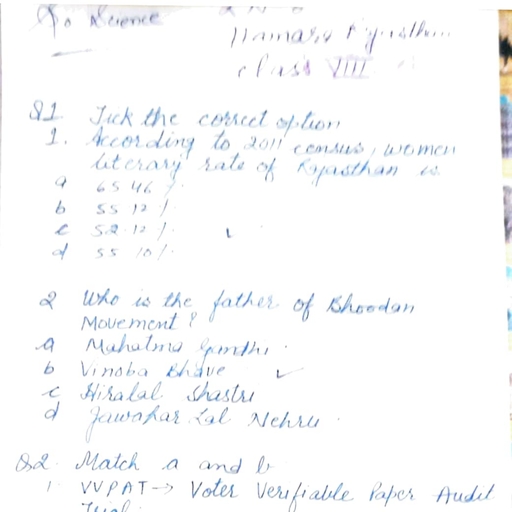 Science
Hamara Rajasthan
class VIII
Q1 Tick the correct option
1. According to 2011 census, women
literary rate of Rajasthan is
a 65 46 %.
b 55 12 %.
c 52.12 %. ✓
d 55 10 %.
2 Who is the father of Bhoodan
Movement?
a Mahatma Gandhi.
b Vinoba Bhave ✓
c Hiralal Shastri
d Jawahar Lal Nehru.
Q2. Match a and b
1. VVPAT → Voter Verifiable Paper Audit